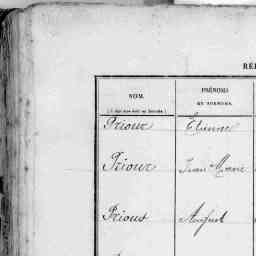 RÉ
NOM.
PRÉNOMS
OU SURNOMS.
Prioux Etienne
Prioux Jean Marie
Prioux August